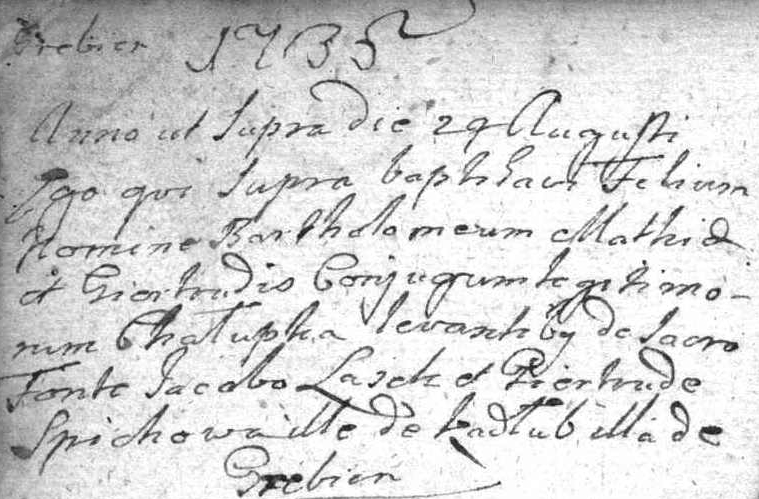 Grebien 1735
Anno ut Supra die 24 Augusti
Ego qui Supra baptisavi Filium
Nomine Bartholomeum Mathiæ
et Giertrudis Conjugum legitimo-
rum Chałupka levantiby de Sacro
Fonte Jacobo Lasek et Giertrude
Spichowa ille de Kadłub illa de
Grebien